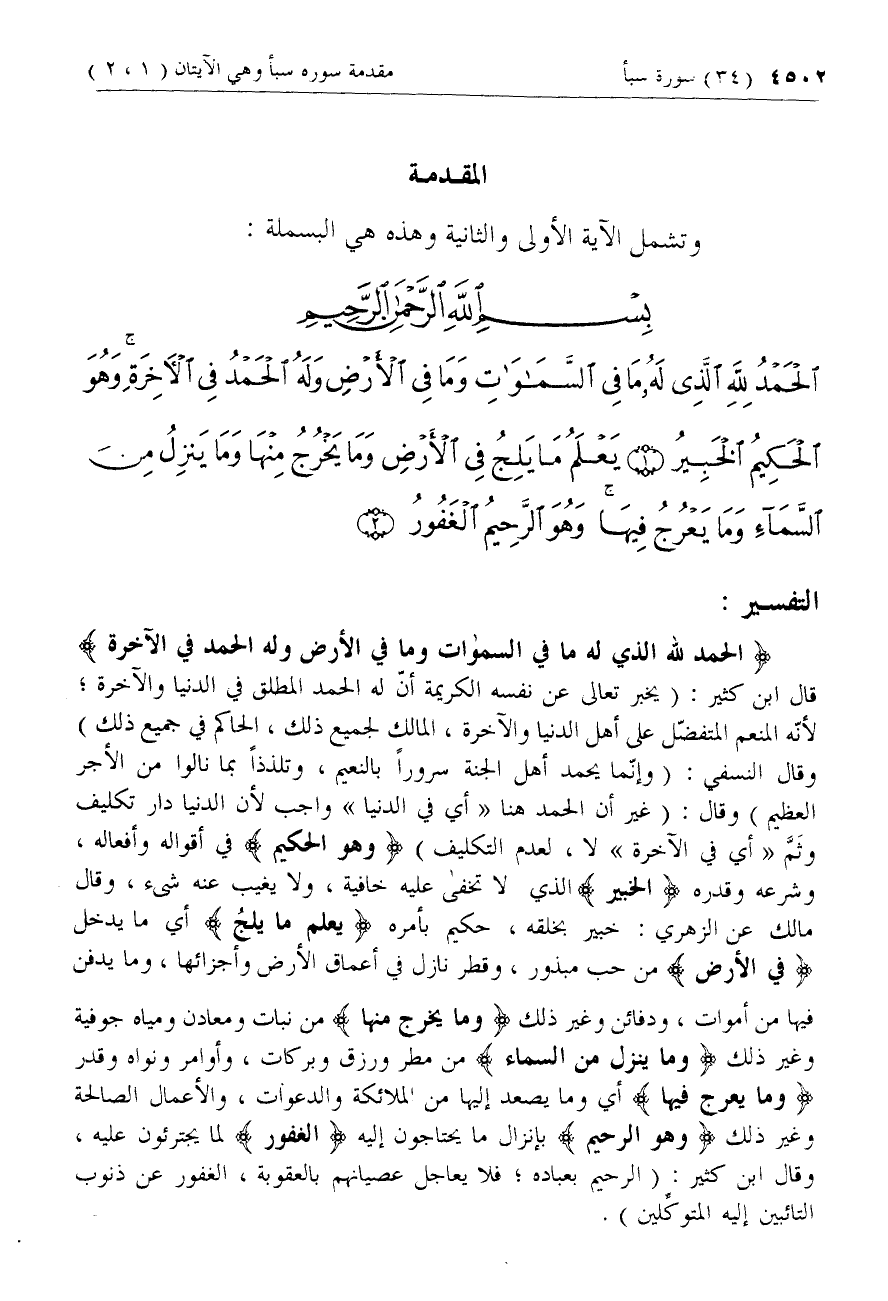 ٤٥٠٢ (٣٤) سورة سبأ مقدمة سوره سبأ وهي الآيتان ( ١ ، ٢ )
المقدمة
وتشمل الآية الأولى والثانية وهذه هي البسملة :
بِسْمِ ٱللَّهِ ٱلرَّحْمَٰنِ ٱلرَّحِيمِ
ٱلْحَمْدُ لِلَّهِ ٱلَّذِى لَهُۥ مَا فِى ٱلسَّمَٰوَٰتِ وَمَا فِى ٱلْأَرْضِ وَلَهُ ٱلْحَمْدُ فِى ٱلْأَخِرَةِۚ وَهُوَ
ٱلْحَكِيمُ ٱلْخَبِيرُ ﴿١﴾ يَعْلَمُ مَا يَلِجُ فِى ٱلْأَرْضِ وَمَا يَخْرُجُ مِنْهَا وَمَا يَنزِلُ مِنَ
ٱلسَّمَآءِ وَمَا يَعْرُجُ فِيهَاۚ وَهُوَ ٱلرَّحِيمُ ٱلْغَفُورُ ﴿٢﴾
التفسير :
﴿ الحمد لله الذي له ما في السمٰوات وما في الأرض وله الحمد في الآخرة ﴾
قال ابن كثير : ( يخبر تعالى عن نفسه الكريمة أنّ له الحمد المطلق في الدنيا والآخرة ؛
لأنّه المنعم المتفضّل على أهل الدنيا والآخرة ، المالك لجميع ذلك ، الحاكم في جميع ذلك )
وقال النسفي : ( وإنّما يحمد أهل الجنة سروراً بالنعيم ، وتلذذاً بما نالوا من الأجر
العظيم ) وقال : ( غير أن الحمد هنا « أي في الدنيا » واجب لأن الدنيا دار تكليف
وثَمَّ « أي في الآخرة » لا ، لعدم التكليف ) ﴿ وهو الحكيم ﴾ في أقواله وأفعاله ،
وشرعه وقدره ﴿ الخبير ﴾ الذي لا تخفىٰ عليه خافية ، ولا يغيب عنه شيء ، وقال
مالك عن الزهري : خبير بخلقه ، حكيم بأمره ﴿ يعلم ما يلجُ ﴾ أي ما يدخل
﴿ في الأرض ﴾ من حب مبذور ، وقطر نازل في أعماق الأرض وأجزائها ، وما يدفن
فيها من أموات ، ودفائن وغير ذلك ﴿ وما يخرج منها ﴾ من نبات ومعادن ومياه جوفية
وغير ذلك ﴿ وما ينزل من السماء ﴾ من مطر ورزق وبركات ، وأوامر ونواه وقدر
﴿ وما يعرج فيها ﴾ أي وما يصعد إليها من الملائكة والدعوات ، والأعمال الصالحة
وغير ذلك ﴿ وهو الرحيم ﴾ بإنزال ما يحتاجون إليه ﴿ الغفور ﴾ لما يجترئون عليه ،
وقال ابن كثير : ( الرحيم بعباده ؛ فلا يعاجل عصيانهم بالعقوبة ، الغفور عن ذنوب
التائبين إليه المتوكّلين ) .